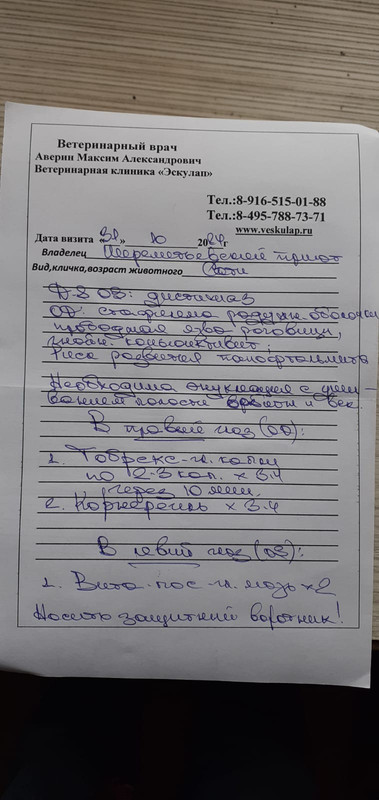 Ветеринарный врач
Аверин Максим Александрович
Ветеринарная клиника «Эскулап»
Тел.:8-916-515-01-88
Тел.:8-495-788-73-71
www.veskulap.ru
Дата визита «31» 10 2024г
Владелец Шереметьевский приют
Вид,кличка,возраст животного
D-S OS: дистихиаз
OD: стафилома радужн. оболочки,
прободная язва роговицы,
гнойн. конъюнктивит;
Риск развития панофтальмита
Необходима энуклеация с уши-
ванием полости орбиты и век
В правый глаз (OD):
1. Тобрекс-гл. капли
по 2-3 кап. х 3-4
через 10 мин.
2. Корнерегель х 3-4
В левый глаз (OS):
1. Вита-пос-гл. мазь х2
Носить защитный воротник!